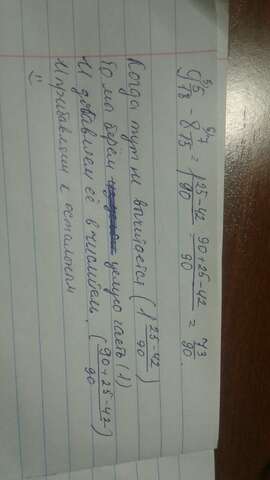 9 5/18 - 8 7/15 = 1 25-42/90 = 90+25-42/90 = 73/90.
Когда тут не вычитается (1 25-42/90)
То мы берем целую часть (1)
И добавляем её в числитель. (90+25-42/90)
И прибавляем к остальным
:)